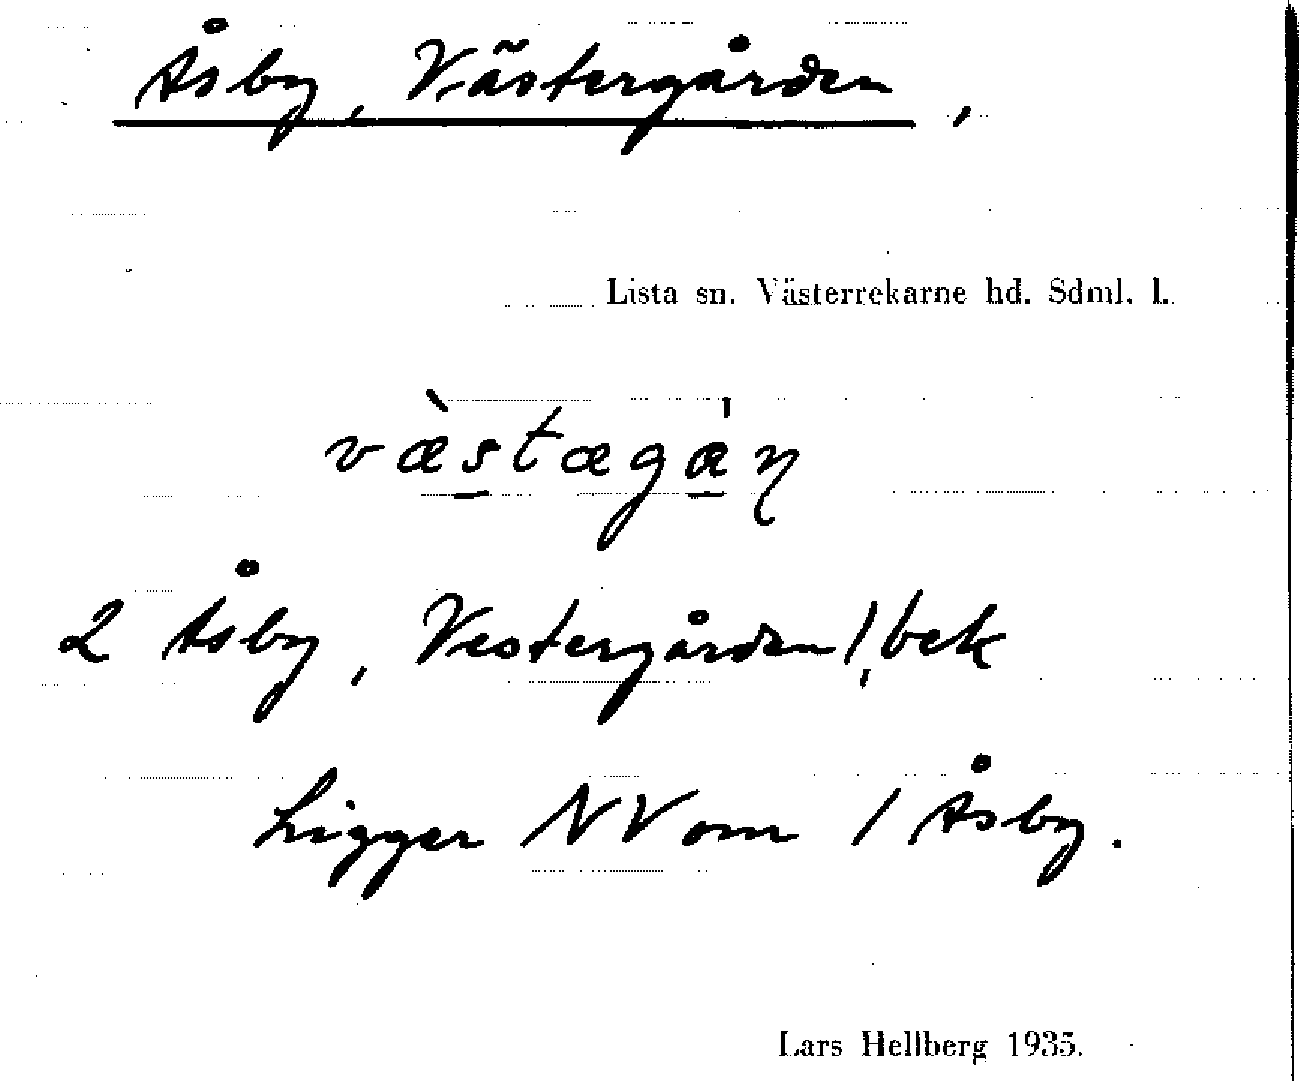 Åsby, Västergården,
Lista sn. Västerrekarne hd. Sdml. l.
væ̀stægæ̍ɳ
2 Åsby, Vestergården /, bek
Ligger NV om 1 Åsby.
Lars Hellberg 1935.